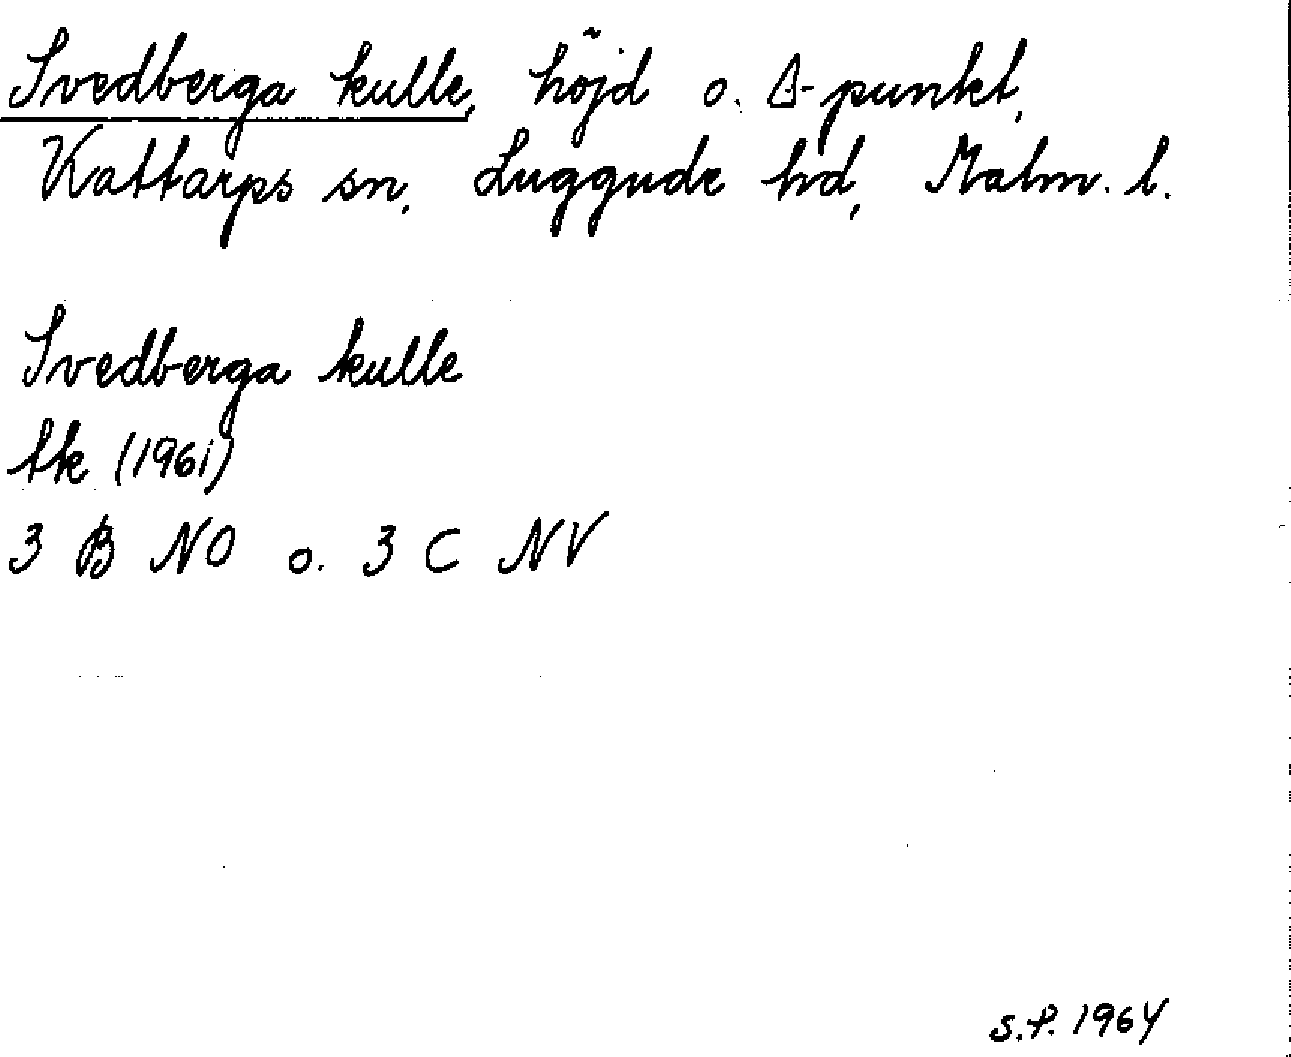 Svedberga kulle, höjd o. Δ-punkt,
Kattarps sn, Luggude hd, Malm. l.
Svedberga kulle
tk (1961)
3 B NO o. 3 C NV
S.F. 1964